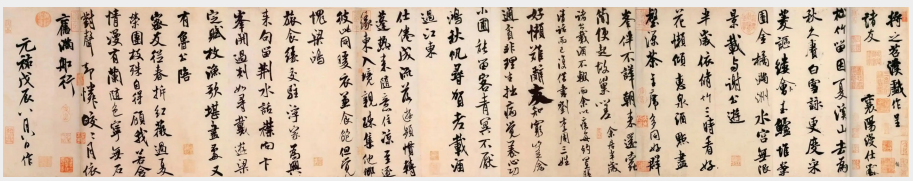 將之苕溪戲作呈
諸友
襄陽漫仕黻
松竹留因夏溪山去為
秋久賡白雪詠更度采
菱謳縷會玉鱸堆案
團金橘滿洲水宮無限
景載與謝公遊
半歲依脩竹三時看好
花懶傾惠泉酒點盡
壑源茶主席多同好群
峯伴不譁朝來還蠹
簡便起故巢嗟
余居半歲諸公載酒不輟而余以疾每約置膳
清話而已復借書劉李周三姓
好懶難辭友知窮豈念
通貧非理生拙病覺養心功
小圃能留客青冥不厭
鴻秋帆尋賀老載酒
過江東
仕倦成流落遊頻慣轉
蓬熱來隨意住涼至逐
緣東入境親踈集他鄉
彼此同暖衣兼食飽但覺
愧梁鴻
旅食緣交駐浮家為興
來句留荆水話襟向卞
峯開過剡如尋戴遊梁
定賦枚漁歌堪畫處又
有魯公陪
密友從春拆紅薇過夏
榮團枝殊自得顧我若含
情漫有蘭隨色寧無石
對聲却憐皎々月依
舊滿船行
元祐戊辰八月八日作